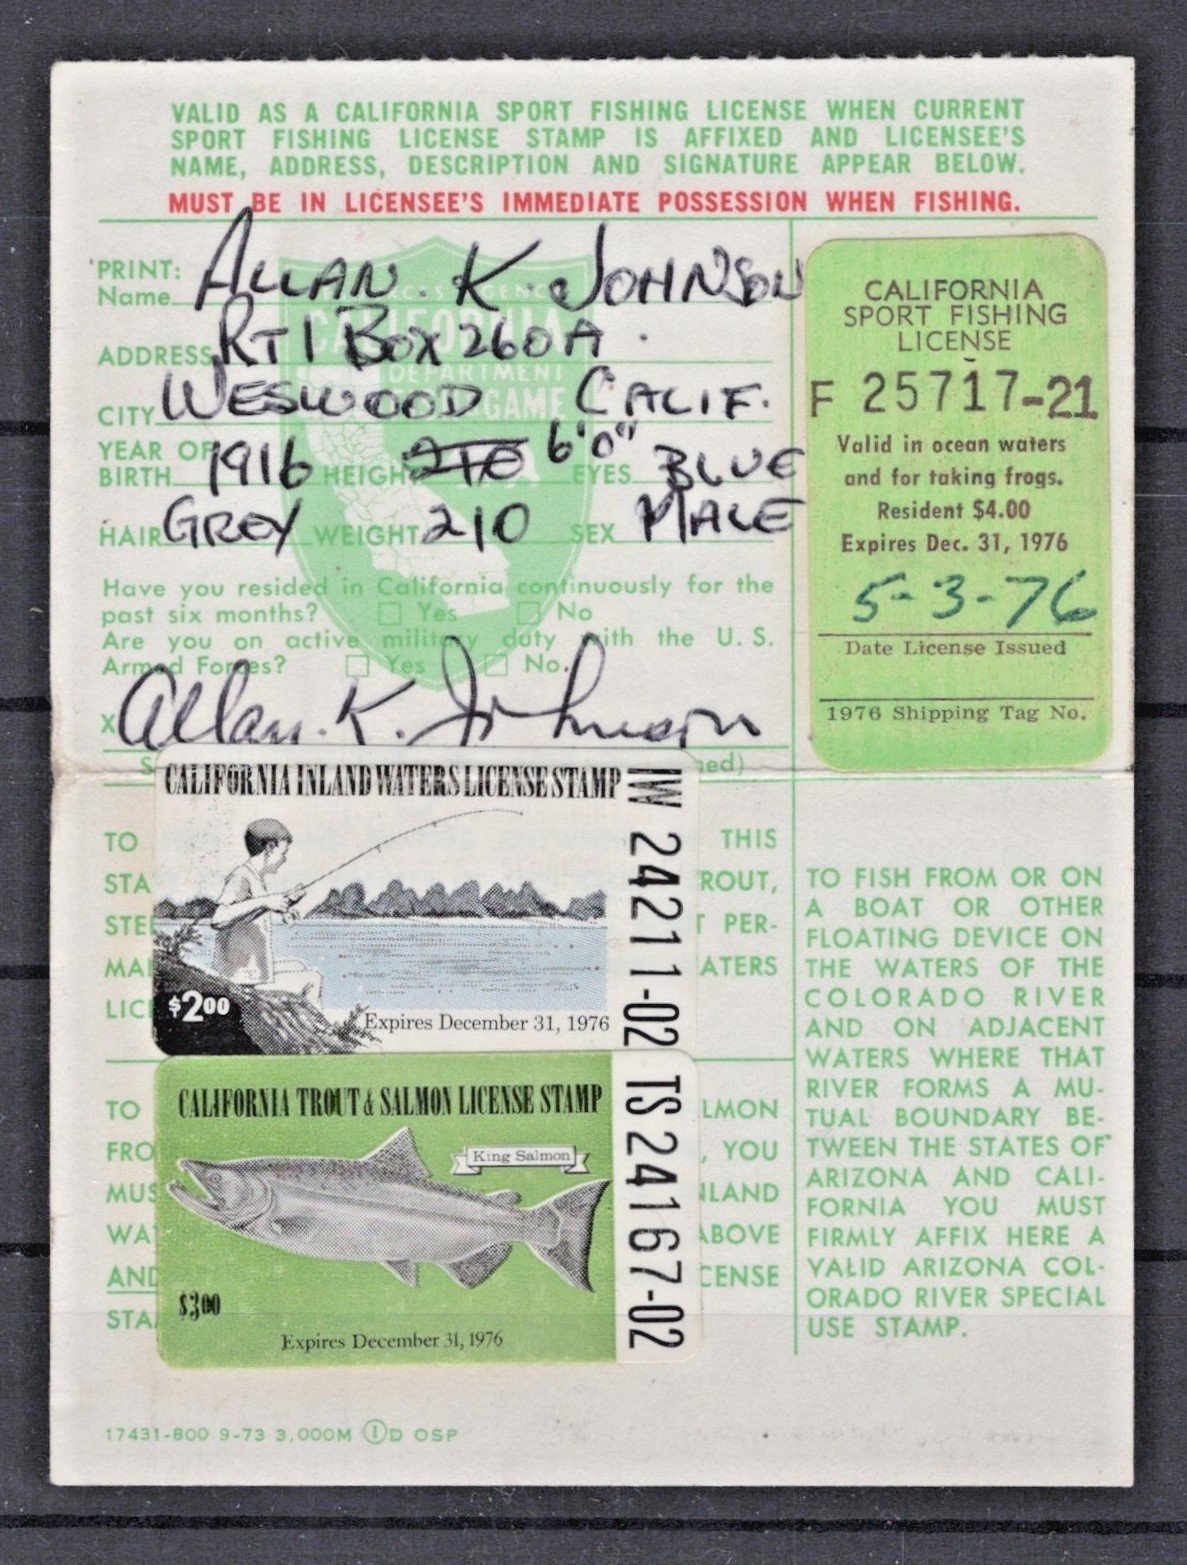 VALID AS A CALIFORNIA SPORT FISHING LICENSE WHEN CURRENT
SPORT FISHING LICENSE STAMP IS AFFIXED AND LICENSEE'S
NAME, ADDRESS, DESCRIPTION AND SIGNATURE APPEAR BELOW.
MUST BE IN LICENSEE'S IMMEDIATE POSSESSION WHEN FISHING.
PRINT:
Name ALLAN. K. JOHNSON
ADDRESS RT 1 BOX 260A.
CITY WESWOOD CALIF.
YEAR OF
BIRTH 1916 HEIGHT 6'0" EYES BLUE
HAIR GREY WEIGHT 210 SEX MALE
CALIFORNIA
DEPARTMENT
GAME
Have you resided in California continuously for the
past six months? Yes No
Are you on active military duty with the U. S.
Armed Forces? Yes No.
X Allan. K. Johnson
ned)
CALIFORNIA
SPORT FISHING
LICENSE
F 25717-21
Valid in ocean waters
and for taking frogs.
Resident $4.00
Expires Dec. 31, 1976
5-3-76
Date License Issued
1976 Shipping Tag No.
CALIFORNIA INLAND WATERS LICENSE STAMP
IW 24211-02
$2.00
Expires December 31, 1976
CALIFORNIA TROUT & SALMON LICENSE STAMP
TS 24167-02
King Salmon
$3.00
Expires December 31, 1976
TO THIS
STA ROUT,
STEE T PER-
MAI ATERS
LICE
TO LMON
FRO , YOU
MUS NLAND
WA ABOVE
AND CENSE
STA
TO FISH FROM OR ON
A BOAT OR OTHER
FLOATING DEVICE ON
THE WATERS OF THE
COLORADO RIVER
AND ON ADJACENT
WATERS WHERE THAT
RIVER FORMS A MU-
TUAL BOUNDARY BE-
TWEEN THE STATES OF
ARIZONA AND CALI-
FORNIA YOU MUST
FIRMLY AFFIX HERE A
VALID ARIZONA COL-
ORADO RIVER SPECIAL
USE STAMP.
17431-800 9-73 3,000M D OSP